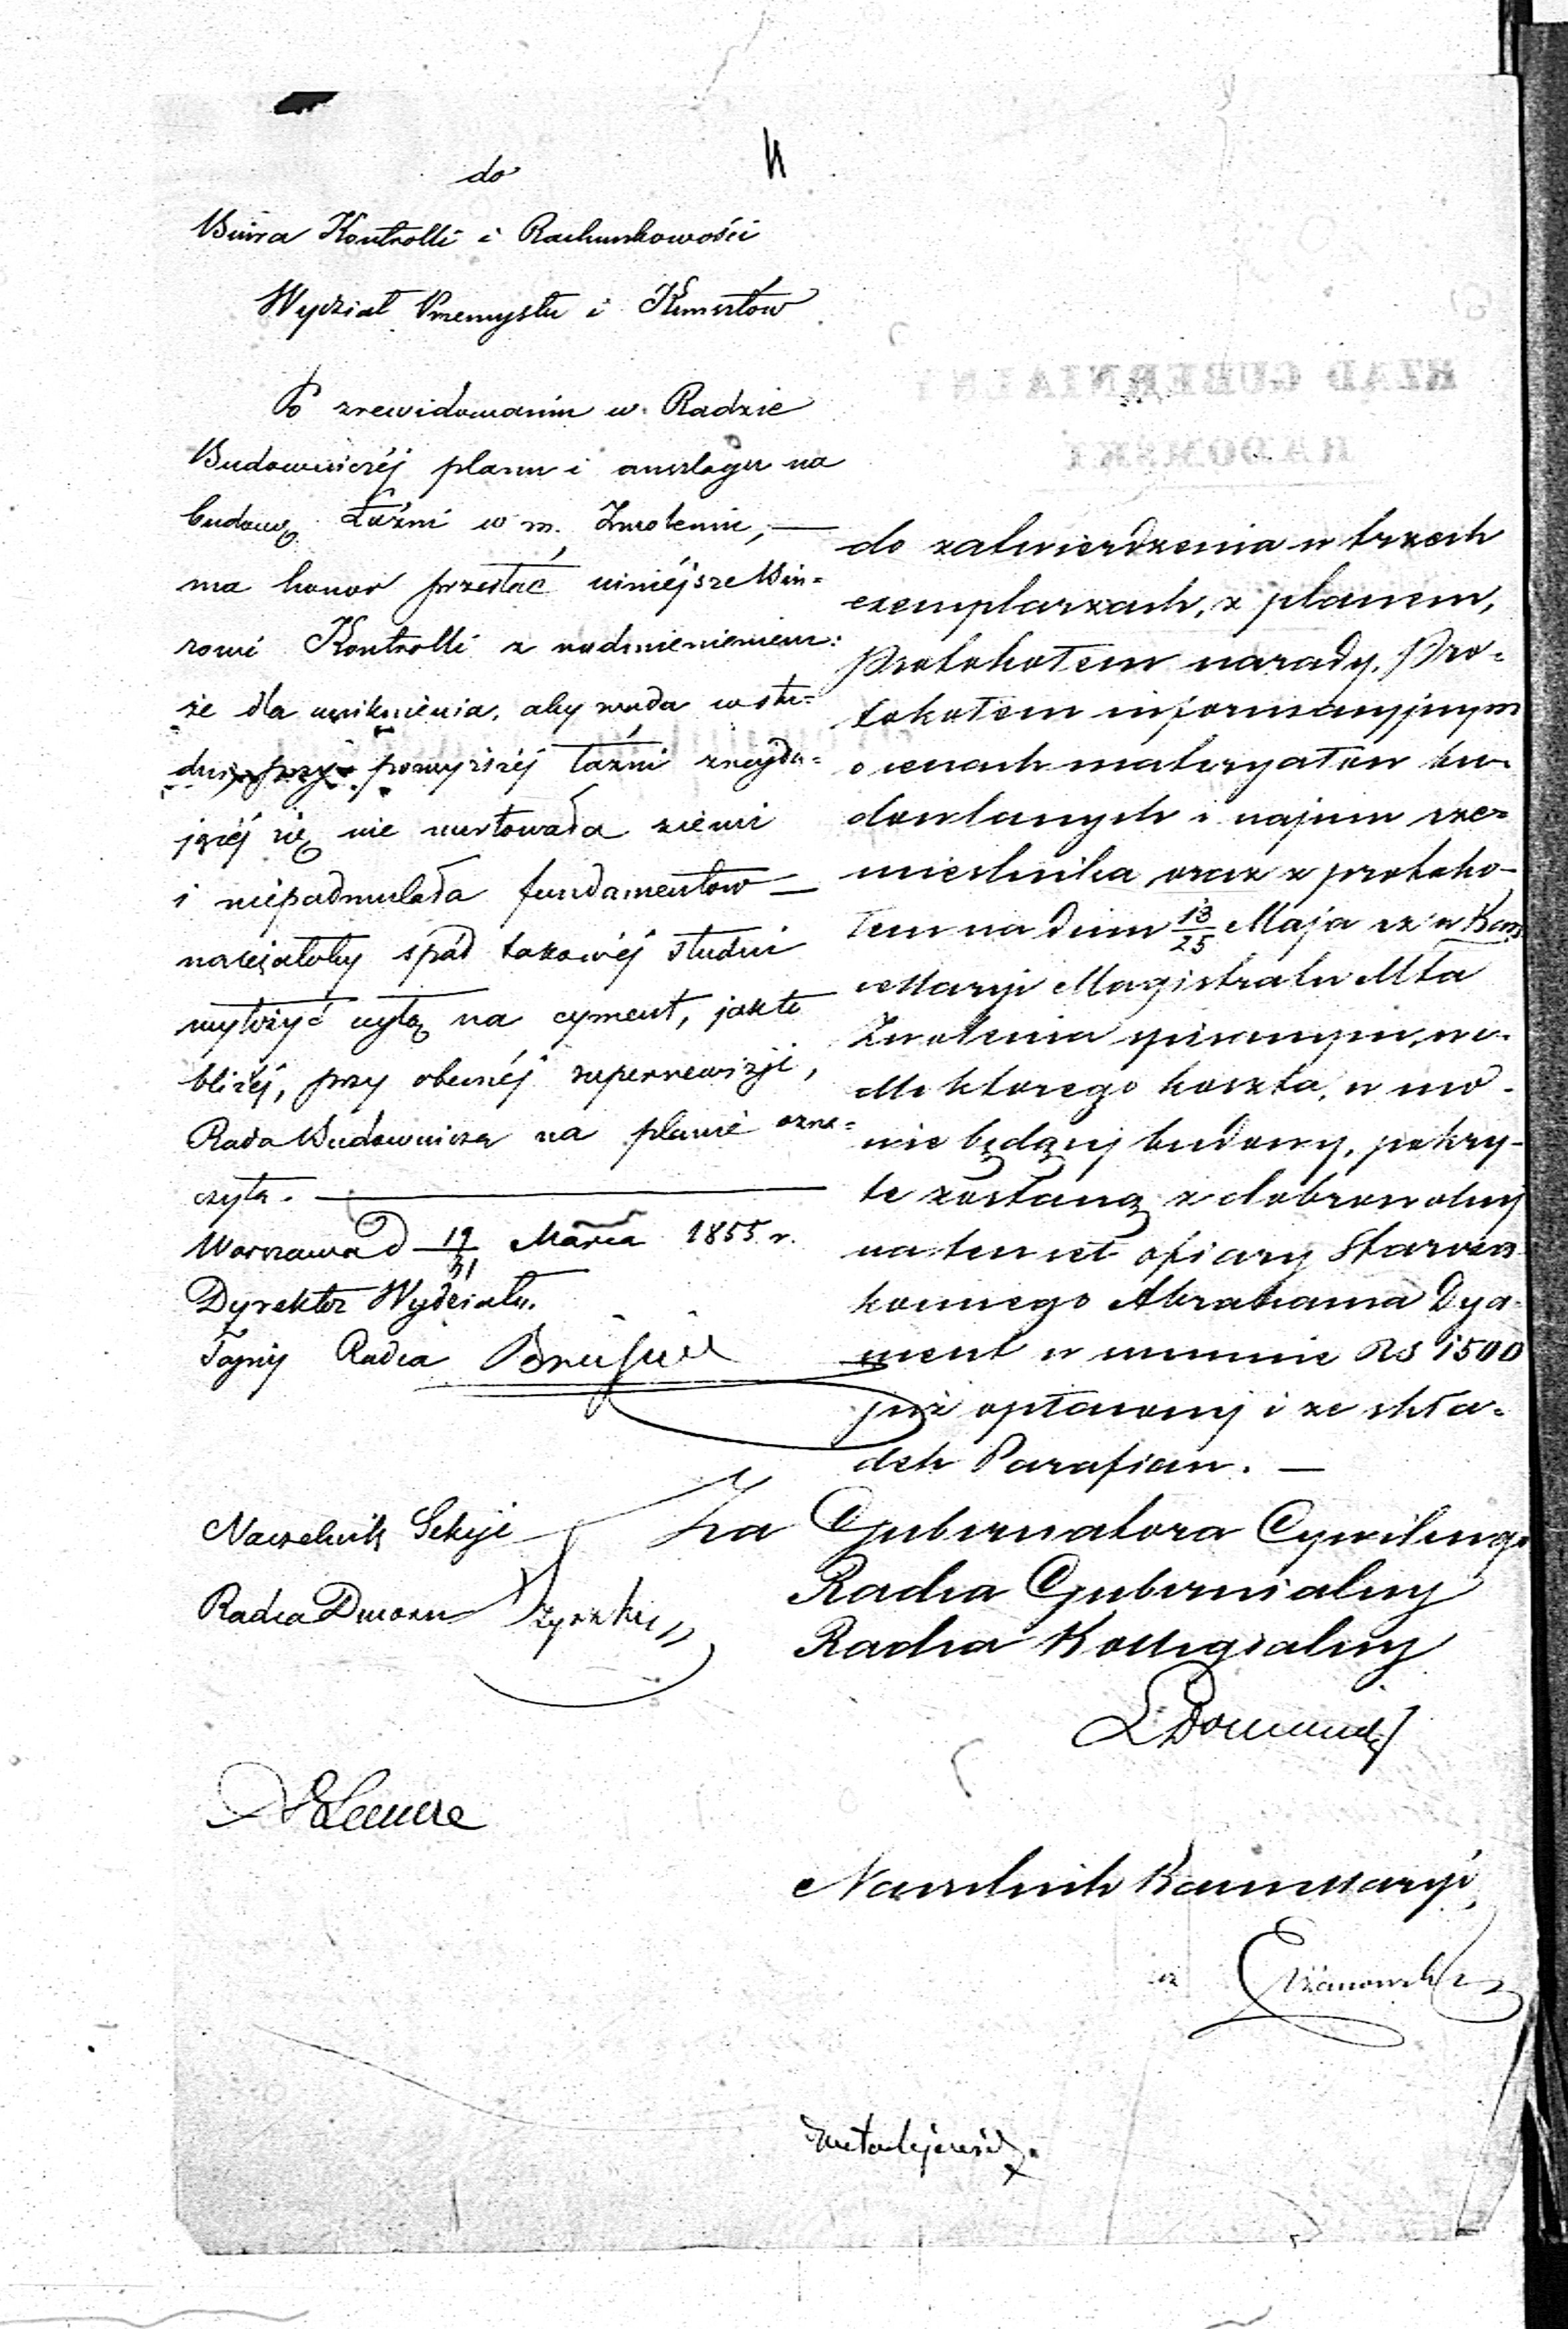 do
Biura Kontrolli i Rachunkowości
Wydział Przemysłu i Kunsztów
Po zrewidowaniu w Radzie
Budowniczéj planu i anszlagu na
budowę Łaźni w m. Zwoleniu, —
ma honor przesłać niniéjsze Biu=
rowi Kontrolli z nadmienieniem:
że dla uniknienia, aby woda w stu=
dni przy powyższéj łaźni znajdu=
jącéj się nie nurtowała ziemi
i niepodmulała fundamentów —
należałoby spód takowéj studni
wyłożyć cegłą na cyment, jak to
bliżéj, przy obecnéj superrewizji,
Rada Budownicza na planie ozna=
czyła. —
Warszawa d 19/31 Marca 1855 r.
Dyrektor Wydziału,
Tajny Radca
Naczelnik Sekcji
Radca Dworu
do zatwierdzenia w trzech
exemplarzach, z planem,
Protokołem narady, Pro-
tokołem informacyjnym
o cenach materyałów bu-
dowlanych i najmu rze-
mieślnika oraz z protoko-
łem na dniu 13/25 Maja rz w Kan
cellaryi Magistratu Mta
Zwolenia spisanym, we-
dle którego koszta, w mo-
wie będącéj budowy, pokry-
te zostaną z dobrowolnéj
na ten cel ofiary Starozа-
konnego Abrahama Dya-
ment w summie Rs 1500
już opłaconej i ze skła-
dek Parafian. —
Za Gubernatora Cywilnego
Radca Gubernialny
Radca Kollegialny
Naczelnik Kancellaryi
RZĄD GUBERNIALNY
RADOMSKI